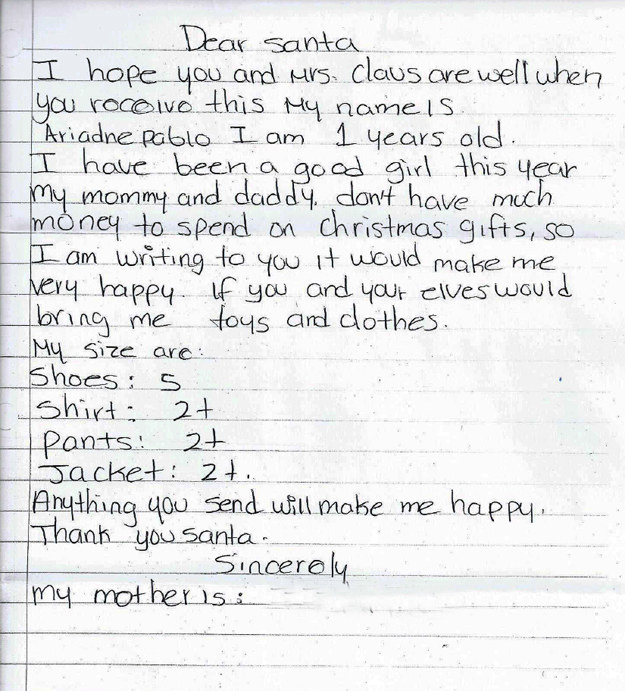 Dear santa
I hope you and Mrs. Claus are well when
you receive this My name is
Ariadne pablo I am 1 years old.
I have been a good girl this year
My mommy and daddy. don't have much
money to spend on christmas gifts, so
I am writing to you it would make me
very happy. if you and your elves would
bring me toys and clothes.
My size are:
Shoes: 5
Shirt: 2t
pants: 2t
Jacket: 2t.
Anything you send will make me happy.
Thank you santa.
Sincerely
My mother is: